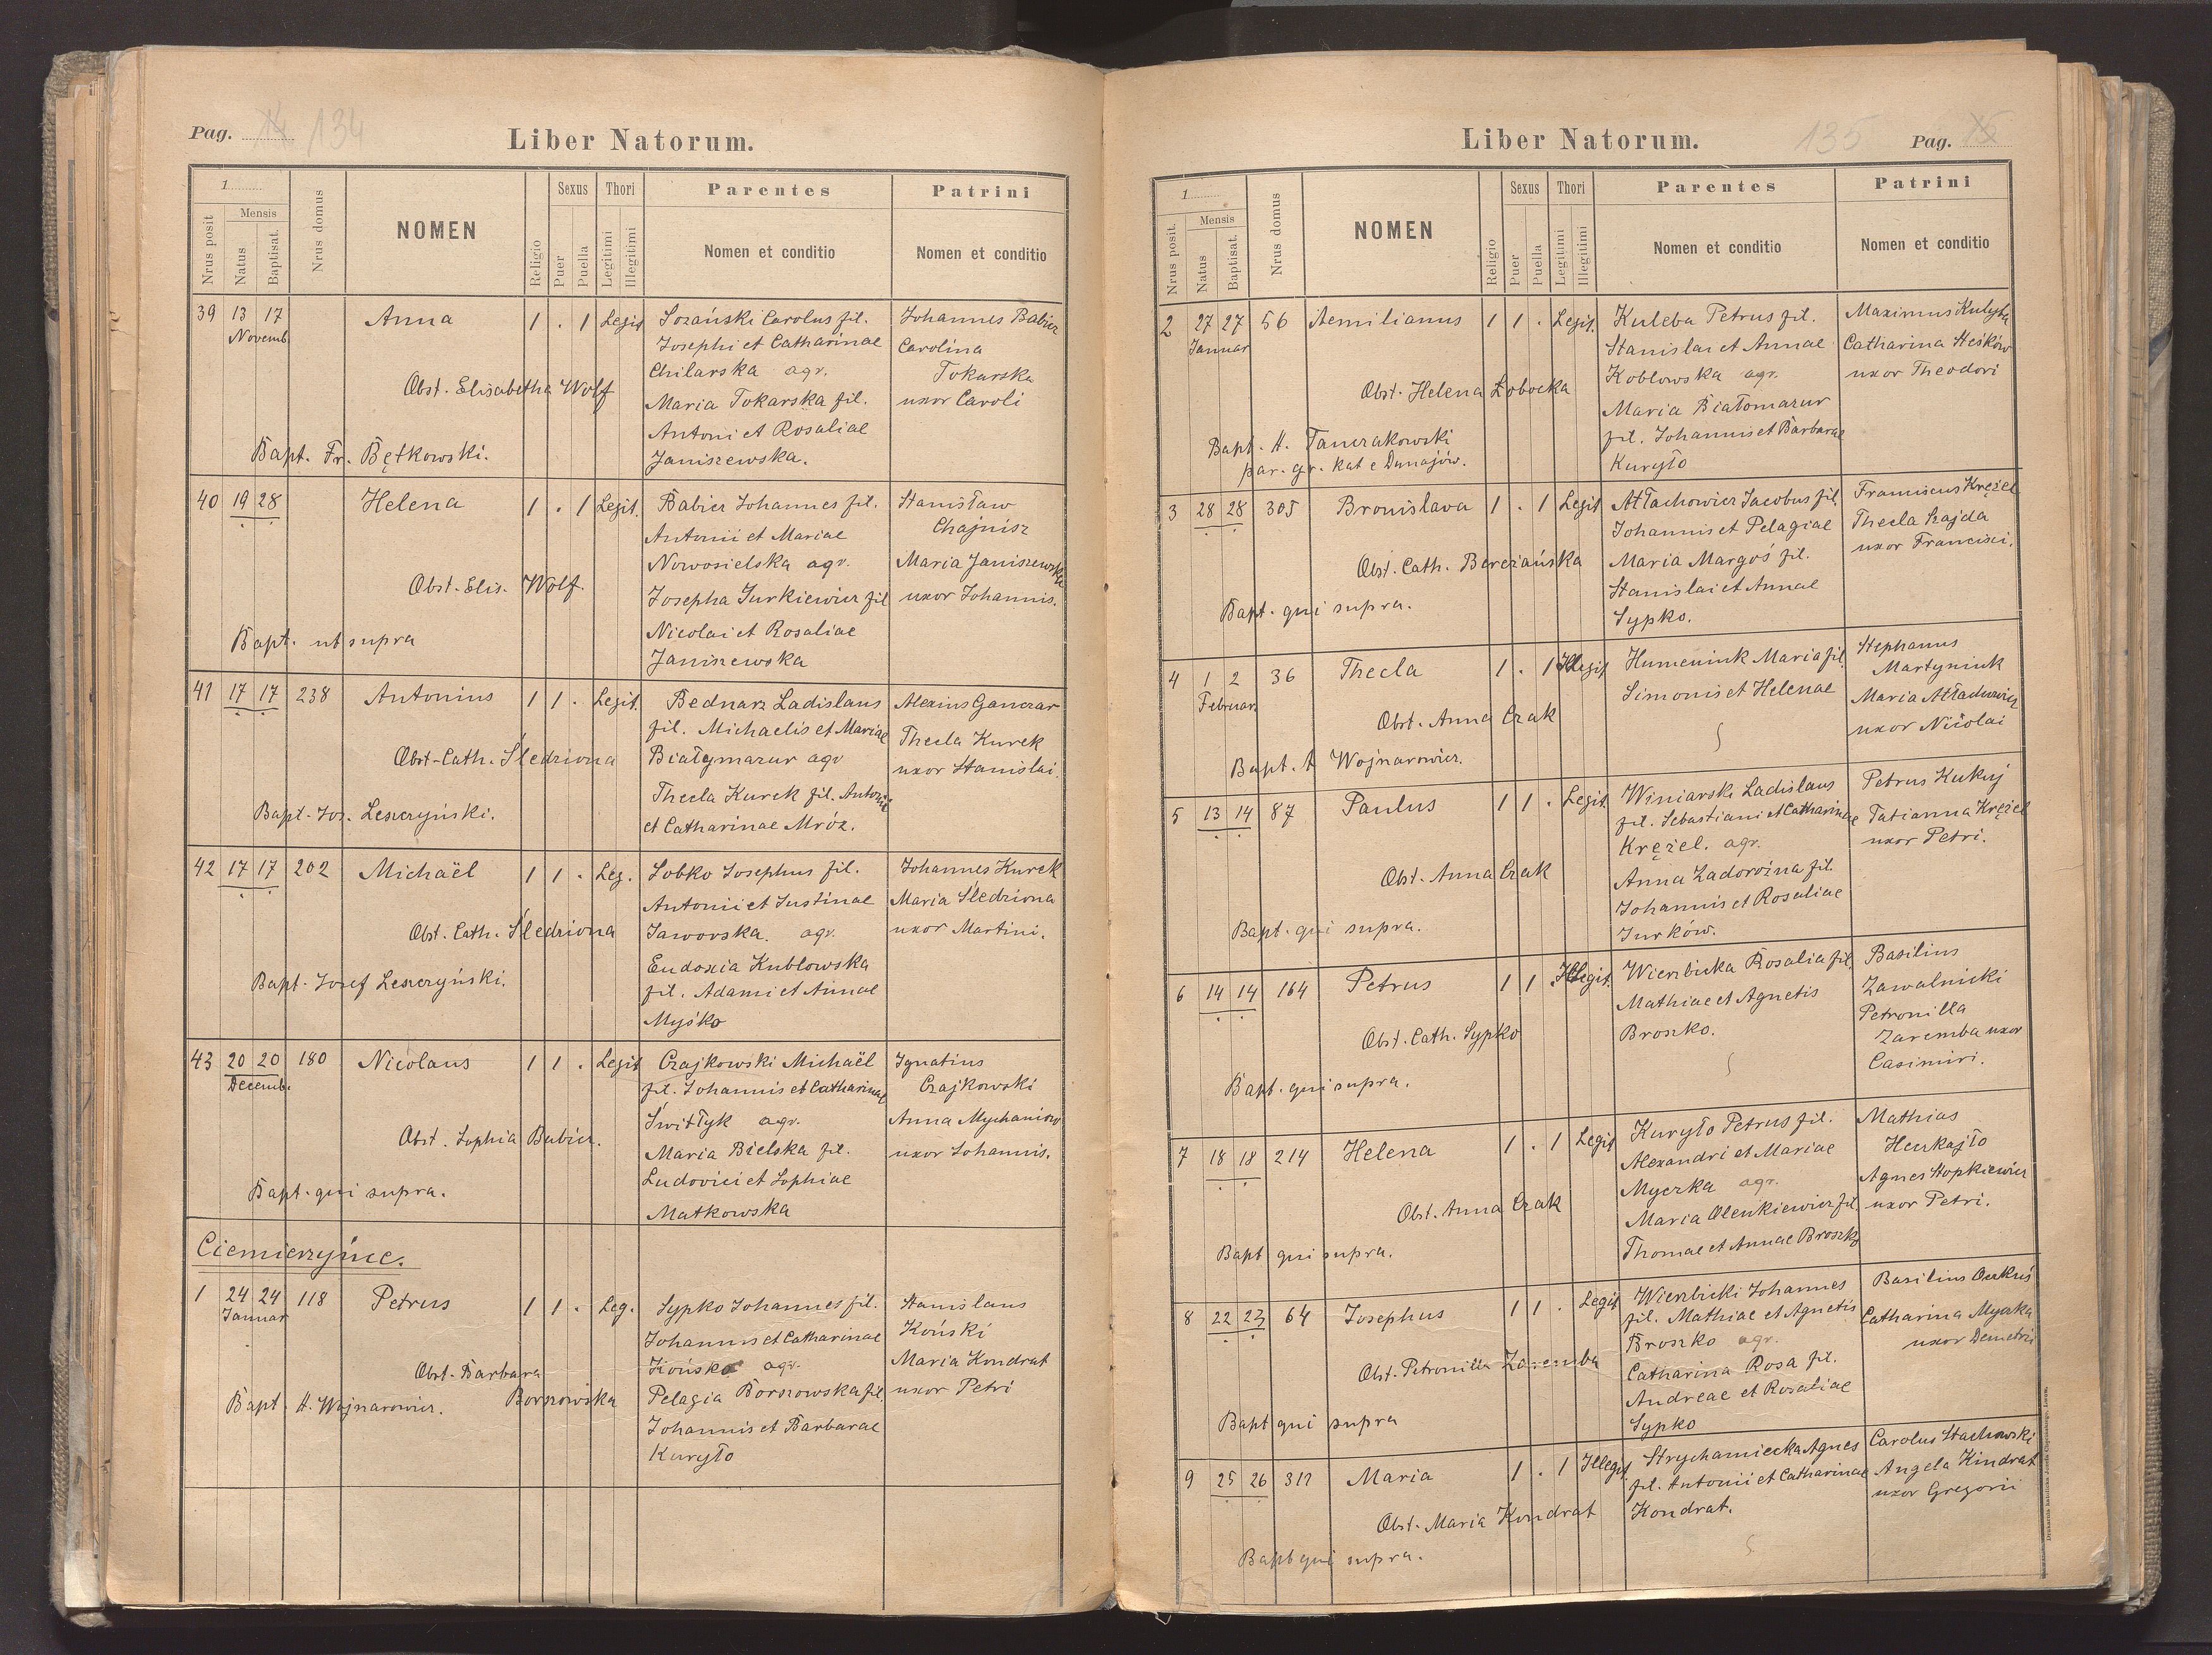 Pag. 14 134
Liber Natorum.
1
Nrus posit
Mensis
Natus
Baptisat.
Nrus domus
NOMEN
Religio
Sexus
Puer
Puella
Thori
Legitimi
Illegitimi
Parentes
Nomen et conditio
Patrini
Nomen et conditio
39 13 17 Anna 1 . 1 Legit Łozański Carolus fil. Johannes Babier
Novemb. Josephi et Catharinae Carolina
Chilarska agr. Tokarska
Obst. Elisabetha Wolf Maria Tokarska fil. uxor Caroli
Antoni et Rosaliae
Bapt. Fr. Bętkowski. Janiszewska.
40 19 28 Helena 1 . 1 Legit. Babier Johannes fil. Stanisław
Antonii et Mariae Chajnisz
Nowosielska agr. Maria Janiszewska
Obst. Elis. Wolf. Josepha Jurkiewicz fil uxor Johannis.
Bapt. ut supra Nicolai et Rosaliae
Janiszewska
41 17 17 238 Antonius 1 1 . Legit. Bednarz Ladislaus Alexius Ganczar
fil. Michaelis et Mariae Thecla Kurek
Obst-Cath. Śledziona Białymazur agr uxor Stanislai.
Thecla Kurek fil. Antonii
Bapt. Jos. Leszczyński. et Catharinae Mróz.
42 17 17 202 Michaël 1 1 . Leg. Łobko Josephus fil. Johannes Kurek
Antonii et Justinae Maria Śledziona
Obst. Cath. Śledziona Jaworska. agr. uxor Martini.
Eudoxia Kublowska
Bapt. Josef Leszczyński. fil. Adami et Annae
Myśko
43 20 20 180 Nicolaus 1 1 . Legit Czajkowski Michaël Ignatius
Decemb. fil. Johannis et Catharinae Czajkowski
Świtłyk agr. Anna Mychaniow
Obst. Sophia Babicz. Maria Bielska fil. uxor Johannis.
Bapt. qui supra. Ludovici et Sophiae
Matkowska
Ciemierzyńce.
1 24 24 118 Petrus 1 1 . Leg. Sypko Johannes fil. Stanislaus
Januar Johannis et Catharinae Koński
Końska agr. Maria Kondrat
Obst. Barbara Borszowska Pelagia Borszowska fil. uxor Petri
Bapt. A. Wojnarowicz. Johannis et Barbarae
Kuryło
Liber Natorum.
135 Pag. 15
1
Nrus posit.
Mensis
Natus
Baptisat.
Nrus domus
NOMEN
Religio
Sexus
Puer
Puella
Thori
Legitimi
Illegitimi
Parentes
Nomen et conditio
Patrini
Nomen et conditio
2 27 27 56 Aemilianus 1 1 . Legit. Kuleba Petrus fil. Maximus Kulyba
Januar Stanislai et Annae Catharina Steśków
Koblowska agr. uxor Theodori
Obst. Helena Łobocka Maria Białomazur
Bapt. A. Tanczakowski fil. Johannis et Barbarae
par. gr. kat e Dunajów. Kuryło
3 28 28 305 Bronislava 1 . 1 Legit Atłachowicz Jacobus fil. Franciscus Krężel
Johannis et Pelagiae Thecla Hajda
Obst. Cath. Bereżańska Maria Margoś fil. uxor Francisci.
Stanislai et Annae
Bapt. qui supra. Sypko.
4 1 2 36 Thecla 1 . 1 Illegit Humeniuk Maria fil. Stephanus
Februar Simonis et Helenae Martyniuk
Obst. Anna Czak Maria Atłachowicz
Bapt. A Wojnarowicz. uxor Nicolai
5 13 14 87 Paulus 1 1 . Legit. Winiarski Ladislaus Petrus Kukuj
fil. Sebastiani et Catharinae Tatianna Krężel
Krężel. agr. uxor Petri.
Obst. Anna Czak Anna Zadorożna fil.
Johannis et Rosaliae
Bapt. qui supra. Jurków.
6 14 14 164 Petrus 1 1 . Illegit. Wierzbicka Rosalia fil. Basilius
Mathiae et Agnetis Zawalnicki
Obst. Cath. Sypko Broszko. Petronilla
Zaremba uxor
Bapt. qui supra. Casimiri.
7 18 18 214 Helena 1 . 1 Legit Kuryło Petrus fil. Mathias
Alexandri et Mariae Heukajło
Myczka agr. Agnes Stopkiewicz
Obst. Anna Czak Maria Olenkiewicz fil. uxor Petri.
Bapt qui supra. Thomae et Annae Broszko
8 22 23 64 Josephus 1 1 . Legit Wierzbicki Johannes Basilius Oczkuś
fil. Mathiae et Agnetis Catharina Myczka
Broszko agr. uxor Demetrii
Obst. Petronilla Zaremba Catharina Rosa fil.
Andreae et Rosaliae
Bapt qui supra Sypko
9 25 26 311 Maria 1 . 1 Illegit. Strychamiecka Agnes Carolus Stachowski
fil. Antonii et Catharinae Angela Kindrat
Obst. Maria Kondrat Kondrat. uxor Gregorii
Bapt qui supra.